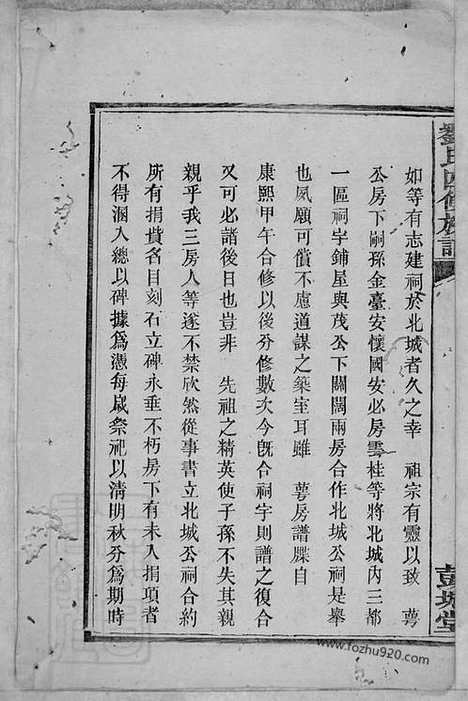 劉氏四修族譜
彭城堂
如等有志建祠於北城者久之幸　祖宗有靈以致　蕚
公房下嗣孫金臺安懷國安必房雲桂等將北城內三都
一區祠宇鋪屋與茂公下關闊兩房合作北城公祠是舉
也夙願可償不慮道謀之築室耳雖　蕚房譜牒自
康熙甲午合修以後分修數次今旣合祠宇則譜之復合
又可必諸後日也豈非　先祖之精英使子孫不失其親
親乎我三房人等遂不禁欣然從事書立北城公祠合約
所有捐貲名目刻石立碑永垂不朽房下有未入捐項者
不得溷入總以碑據爲憑每歲祭祀以清明秋分爲期時
www.fozhu920.com